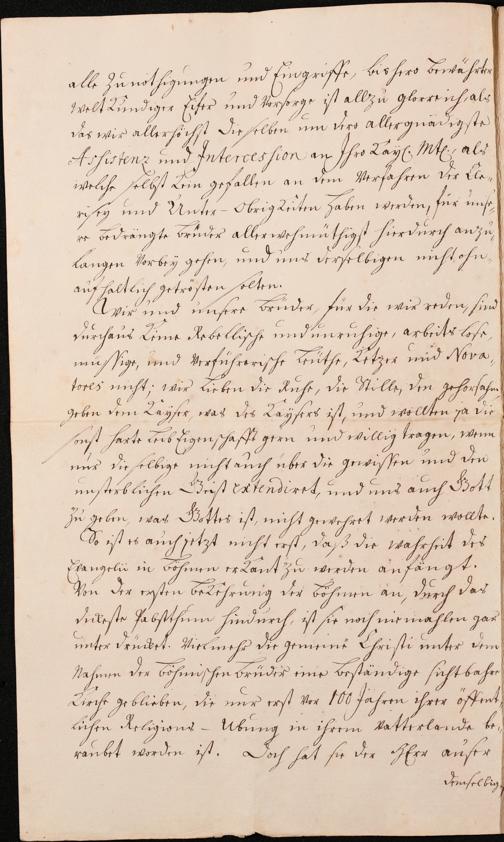 alle Zunöthigungen und Eingriffe, bishero bewährter
Welt Kundiger Eifer und Vorsorge ist allzu glorreich, als
das wir allerhöchst Dieselben um dero allergnädigste
Assistenz und Intercession an Ihro Kayß. Mtt:, als
welche selbst kein gefallen an dem Verfahren der Cle-
risey und Unter-Obrigkeiten haben werden, für unse-
re bedrängte Brüder allerwehmüthigst hierdurch anzu-
langen Vorbey gehen, und uns derselbigen nicht ohn-
aufhältlich getrösten solten.
Wir und unsere Brüder, für die wir reden, sind
durchaus keine Rebellische und unruhige, arbeits lose,
müssige, und Verführerische Leüthe, Ketzer und Nova-
tores nicht; wir lieben die Ruhe, die Stille, den gehorsahm
geben dem Kayser, was des Kaysers ist, und wollten ja die
sonst harte Leib Eigenschafft gern und willig tragen, wenn
nur dieselbige nicht auch über die gewissen und den
unsterblichen Geist extendiret, und uns auch Gott
zu geben, was Gottes ist, nicht gewehret werden wollte.
So ist es auch jetzt nicht erst, daß die wahrheit des
Evangelii in Böhmen erkant zu werden anfängt.
Von der ersten bekehrung der Böhmen an, durch das
dickeste Pabstthum hindurch, ist sie noch niemahlen gar
unterdrücket. Vielmehr die gemeine Christi unter dem
Nahmen der böhmischen Brüder eine beständige sichtbahre
Kirche geblieben, die nur erst vor 100 Jahren ihrer öffent-
lichen Religions-Ubung in ihrem Vatterlande be-
raubet worden ist. Doch hat sie der HErr auser
demselbigen